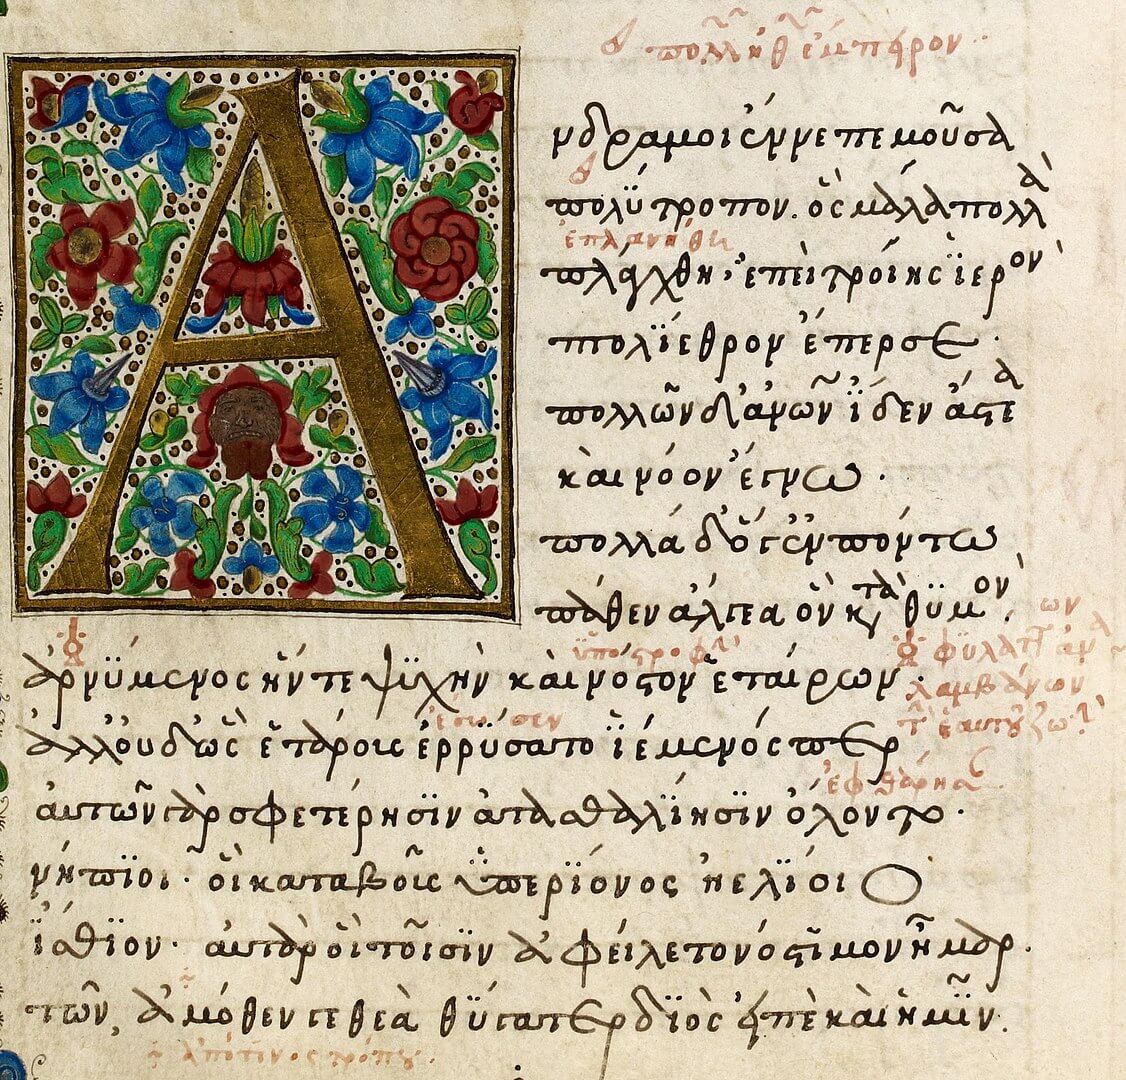 ἔμπειρον
Α
νδρα μοι ἔννεπε μοῦσα
πολύτροπον. ὃς μάλα πολλὰ
ἐπλανήθη
πλάγχθη, ἐπεὶ τροίης ἱερὸν
πτολίεθρον ἔπερσε ·
πολλῶν δ' ἀνῶν ἴδεν ἄστεα
καὶ νόον ἔγνω ·
πολλὰ δ' ὅγ' ἐν πόντω
πάθεν ἄλγεα ὃν κατὰ θυμὸν·
ὑποστροφὴν
ἀρνύμενος ἥν τε ψυχὴν καὶ νόστον ἑταίρων ·
λαμβάνων
ἔσωσεν
ἀλλ' οὐδ' ὣς ἑτάρους ἐρρύσατο ἱέμενός περ
ἐφθάρησαν
αὐτῶν γὰρ σφετέρησιν ἀτασθαλίησιν ὄλοντο ·
νήπιοι · οἳ κατὰ βοῦς ὑπερίονος ἠελίοιο
ἤσθιον · αὐτὰρ ὁ τοῖσιν ἀφείλετο νόστιμον ἦμαρ ·
τῶν, ἁμόθεν γε θεὰ θύγατερ διὸς εἰπὲ καὶ ἡμῖν.
ἀπό τινος τρόπου